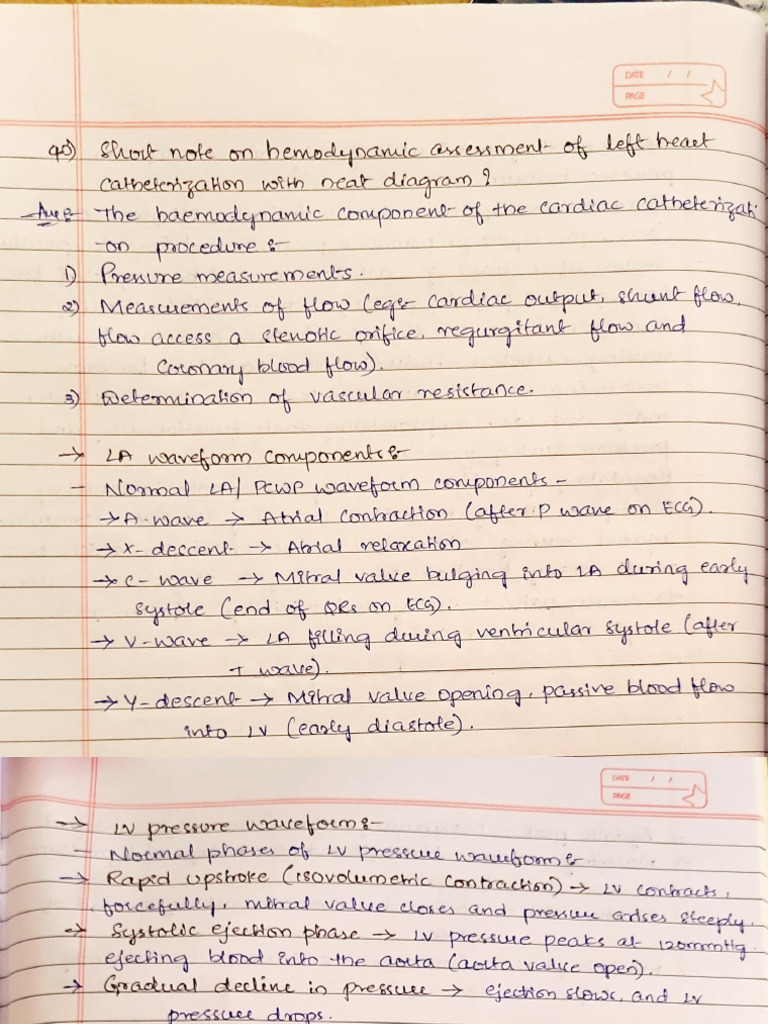 DATE / /
PAGE
40) Short note on hemodynamic assessment of left heart
catheterization with neat diagram?
Ans:- The haemodynamic component of the cardiac catheterizati
-on procedure :-
1) Pressure measurements.
2) Measurements of flow (eg:- cardiac output, shunt flow,
flow access a stenotic orifice, regurgitant flow and
coronary blood flow).
3) Determination of vascular resistance.
→ LA waveform components :-
- Normal LA/ PCWP waveform components -
→ A-wave → Atrial contraction (after P wave on ECG).
→ X-descent → Atrial relaxation
→ C-wave → Mitral valve bulging into LA during early
systole (end of QRS on ECG).
→ V-wave → LA filling during ventricular systole (after
T wave).
→ Y-descent → Mitral valve opening, passive blood flow
into LV (early diastole).
DATE / /
PAGE
→ LV pressure waveform :-
- Normal phases of LV pressure waveform :-
→ Rapid upstroke (isovolumetric contraction) → LV contracts,
forcefully, mitral valve closes and pressure arises steeply.
→ Systolic ejection phase → LV pressure peaks at 120mmHg
ejecting blood into the aorta (aorta valve open).
→ Gradual decline in pressure → ejection slows, and LV
pressure drops.